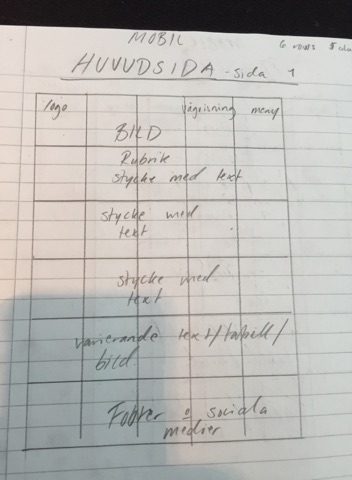 MOBIL
6 rows 5
HUVUDSIDA - sida 1
logo vägvisning meny
BILD
Rubrik
stycke med text
stycke med
text
stycke med
text
varierande text/tabell/
bild
Footer o sociala
medier